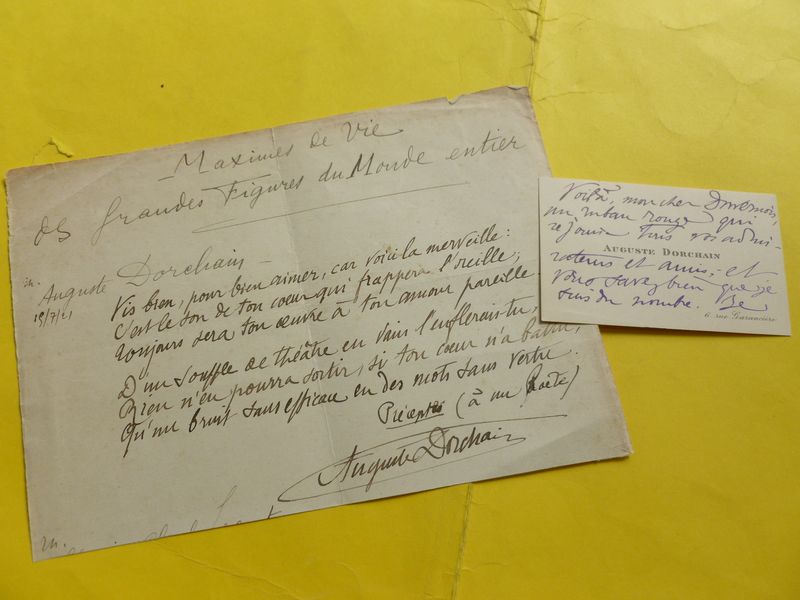 Maximes de Vie
des Grandes Figures du Monde entier
m. Auguste Dorchain
15/7/21
Vis bien, pour bien aimer, car voici la merveille :
C'est le son de ton cœur qui frappera l'oreille ;
Toujours sera ton œuvre à ton amour pareille.
D'un souffle de théâtre en vain l'enflerais-tu,
Rien n'en pourra sortir, si ton cœur n'a battu,
Qu'un bruit sans efficace en des mots sans vertu.
Préceptes (à un Poète)
Auguste Dorchain
m.
Voilà, mon cher Duvernois,
un ruban rouge qui
réjouira tous vos admi-
AUGUSTE DORCHAIN
rateurs et amis ; et
vous savez bien que je
suis du nombre.
6 rue Garancière